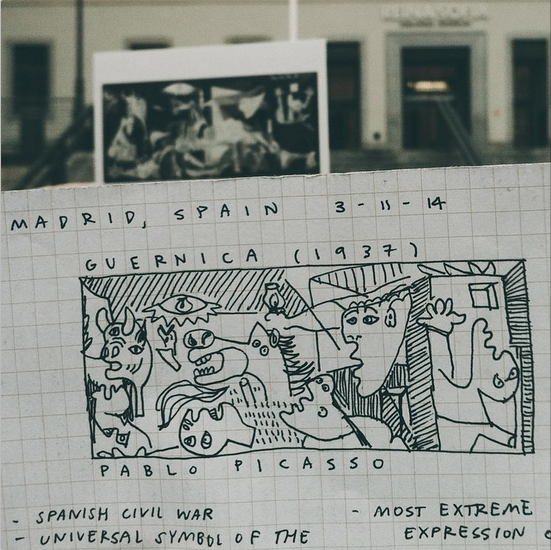 MADRID, SPAIN 3-11-14
GUERNICA (1937)
PABLO PICASSO
- SPANISH CIVIL WAR
- UNIVERSAL SYMBOL OF THE
- MOST EXTREME
EXPRESSION